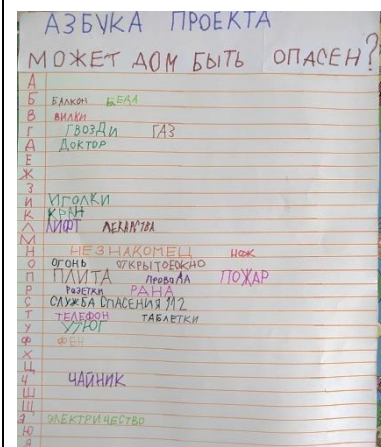 АЗБУКА ПРОЕКТА
МОЖЕТ ДОМ БЫТЬ ОПАСЕН?
А
Б БАЛКОН БЕДА
В ВИЛКИ
Г ГВОЗДИ ГАЗ
Д ДОКТОР
Е
Ж
З
И ИГОЛКИ
К КРАН
Л ЛИФТ ЛЕКАРСТВА
М
Н НЕЗНАКОМЕЦ НОЖ
О ОГОНЬ ОТКРЫТОЕОКНО
П ПЛИТА ПРОВОДА ПОЖАР
Р РОЗЕТКИ РАНА
С СЛУЖБА СПАСЕНИЯ 112
Т ТЕЛЕФОН ТАБЛЕТКИ
У УТЮГ
Ф ФЕН
Х
Ц
Ч ЧАЙНИК
Ш
Щ
Э ЭЛЕКТРИЧЕСТВО
Ю
Я